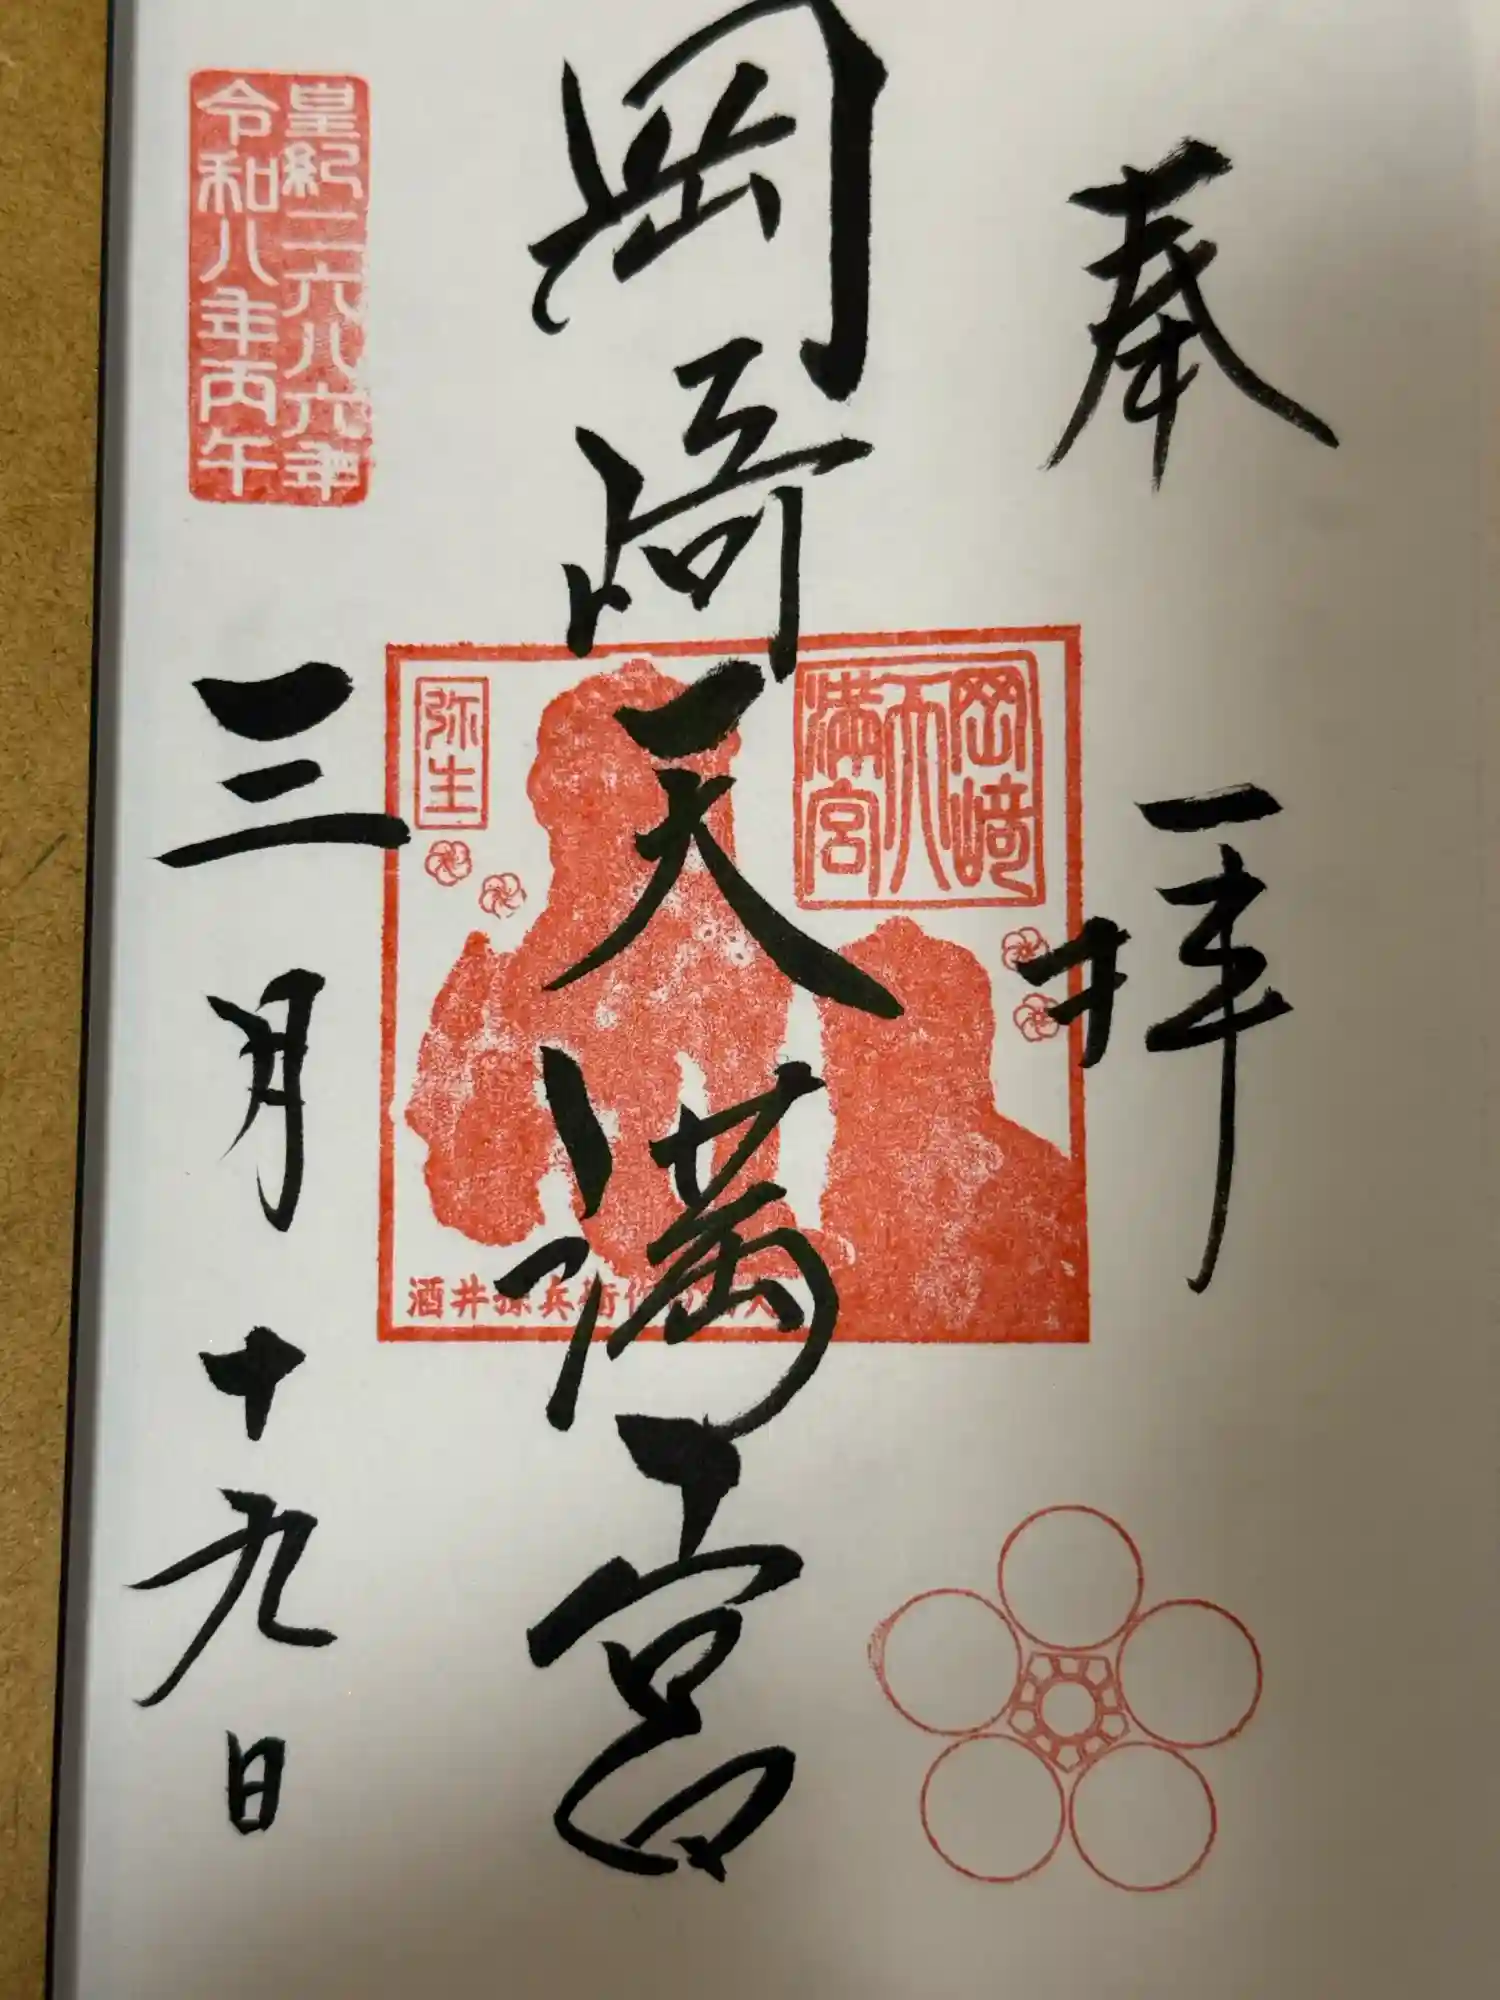 奉拝
岡崎天満宮
岡﨑天満宮
弥生
酒井孫兵衛作
皇紀二六八六年
令和八年丙午
三月十九日